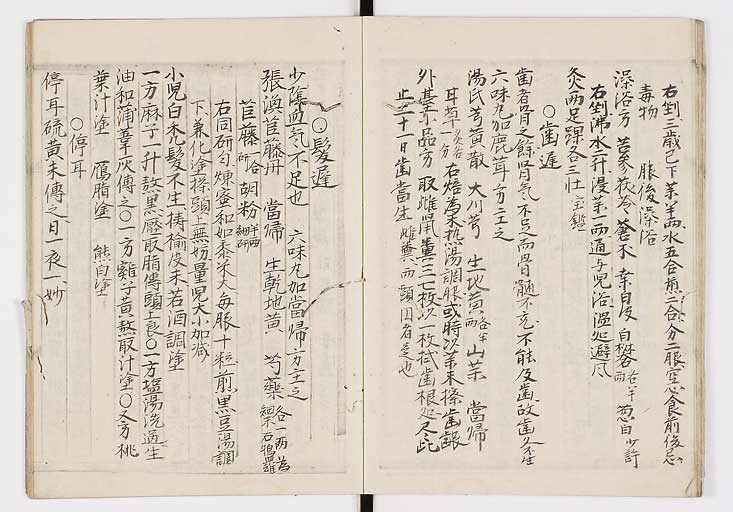 右剉三歲已下藥半兩水五合煎二合分二服空心食前後忌
毒物　服後澡浴
澡浴方　苦參茯苓蒼朮　桑白皮　白礬各半兩　葱白少許
右剉沸水二升浸藥一兩通与児浴温処避风
灸兩足踝各三壮宝鑑
○歯遲
歯者骨之餘肾气不足而骨髓不充不能及歯故歯久不生
六味丸加鹿茸方主之
湯氏芎黄散　大川芎　生地黄各半兩　山藥　當帰
耳草炙各一方　右焙為末热湯調服或時以藥末擦歯齦
外甚不品方　取雄鼠糞三七枚以一枚拭歯根処尽此
止二十一日歯當生　雄糞兩頭因者是也
○髮遲
少隂血气不足也　六味丸加當帰方主之
張渙苣藤丹　當帰　生乾地黄　芍藥各一兩為細末右鴇羅
苣藤研合胡粉半兩細研
右同研匀煉蜜和如黍米大每服十粒煎黒豆湯調
下兼化塗擦頭上無妨量児大小加减
小児白禿髮不生椿榆皮末若酒調塗
一方麻子一升熬黒壓取脂傅頭上良○一方塩湯洗過生
油和蒲葦灰傅之○一方雞子黄熬取汁塗○又方桃
葉汁塗　鴈脂塗　熊白塗
○停耳
停耳硫黄末傅之日一夜一妙